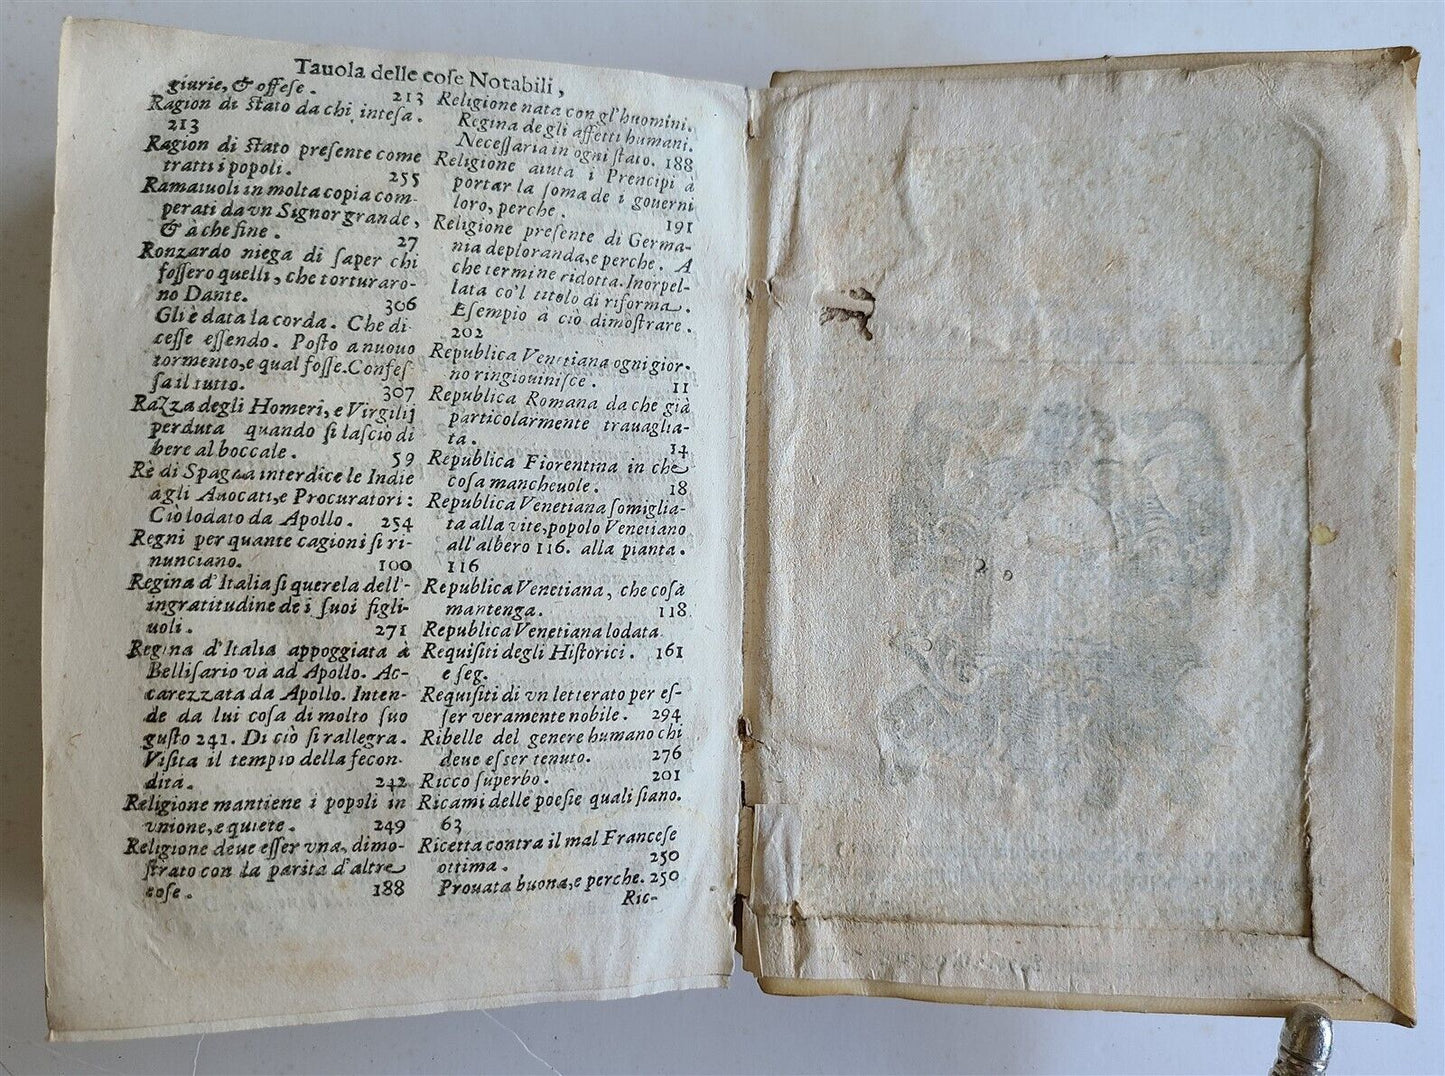 Tauola delle cose Notabili,
giurie, & offeſe. 213
Ragion di ſtato da chi inteſa.
213
Ragion di ſtato preſente come
tratti i popoli. 255
Ramaiuoli in molta copia com-
perati da vn Signor grande,
& à che fine. 27
Ronzardo niega di ſaper chi
foſſero quelli, che torturaro-
no Dante. 306
Gli è data la corda. Che di-
ceſſe eſſendo. Poſto a nuouo
tormento, e qual foſſe. Confeſ
ſa il tutto. 307
Razza degli Homeri, e Virgilij
perduta quando ſi laſciò di
bere al boccale. 59
Rè di Spagna interdice le Indie
agli Auocati, e Procuratori:
Ciò lodato da Apollo. 254
Regni per quante cagioni ſi ri-
nunciano. 100
Regina d'Italia ſi querela dell'-
ingratitudine de i ſuoi figli-
uoli. 271
Regina d'Italia appoggiata à
Belliſario và ad Apollo. Ac-
carezzata da Apollo. Inten-
de da lui coſa di molto ſuo
guſto 241. Di ciò ſi rallegra.
Viſita il tempio della fecon-
dita. 242
Religione mantiene i popoli in
vnione, e quiete. 249
Religione deue eſſer vna, dimo-
ſtrato con la parita d'altre
coſe. 188
Religione nata con gl'huomini.
Regina degli affetti humani.
Neceſſaria in ogni ſtato. 188
Religione aiuta i Prencipi à
portar la ſoma de i gouerni
loro, perche. 191
Religione preſente di Germa-
nia deploranda, e perche. A
che termine ridotta. Inorpel-
lata co'l titolo di riforma.
Eſempio à ciò dimoſtrare.
202
Republica Venetiana ogni gior-
no ringiouiniſce. 11
Republica Romana da che già
particolarmente trauaglia-
ta. 14
Republica Fiorentina in che
coſa mancheuole. 18
Republica Venetiana ſomiglia-
ta alla vite, popolo Venetiano
all'albero 116. alla pianta.
116
Republica Venetiana, che coſa
mantenga. 118
Republica Venetiana lodata
Requiſiti degli Hiſtorici. 161
e ſeg.
Requiſiti di vn letterato per eſ-
ſer veramente nobile. 294
Ribelle del genere humano chi
deue eſſer tenuto. 276
Ricco ſuperbo. 201
Ricami delle poeſie quali ſiano.
63
Ricetta contra il mal Franceſe
ottima. 250
Prouata buona, e perche. 250
Ric-